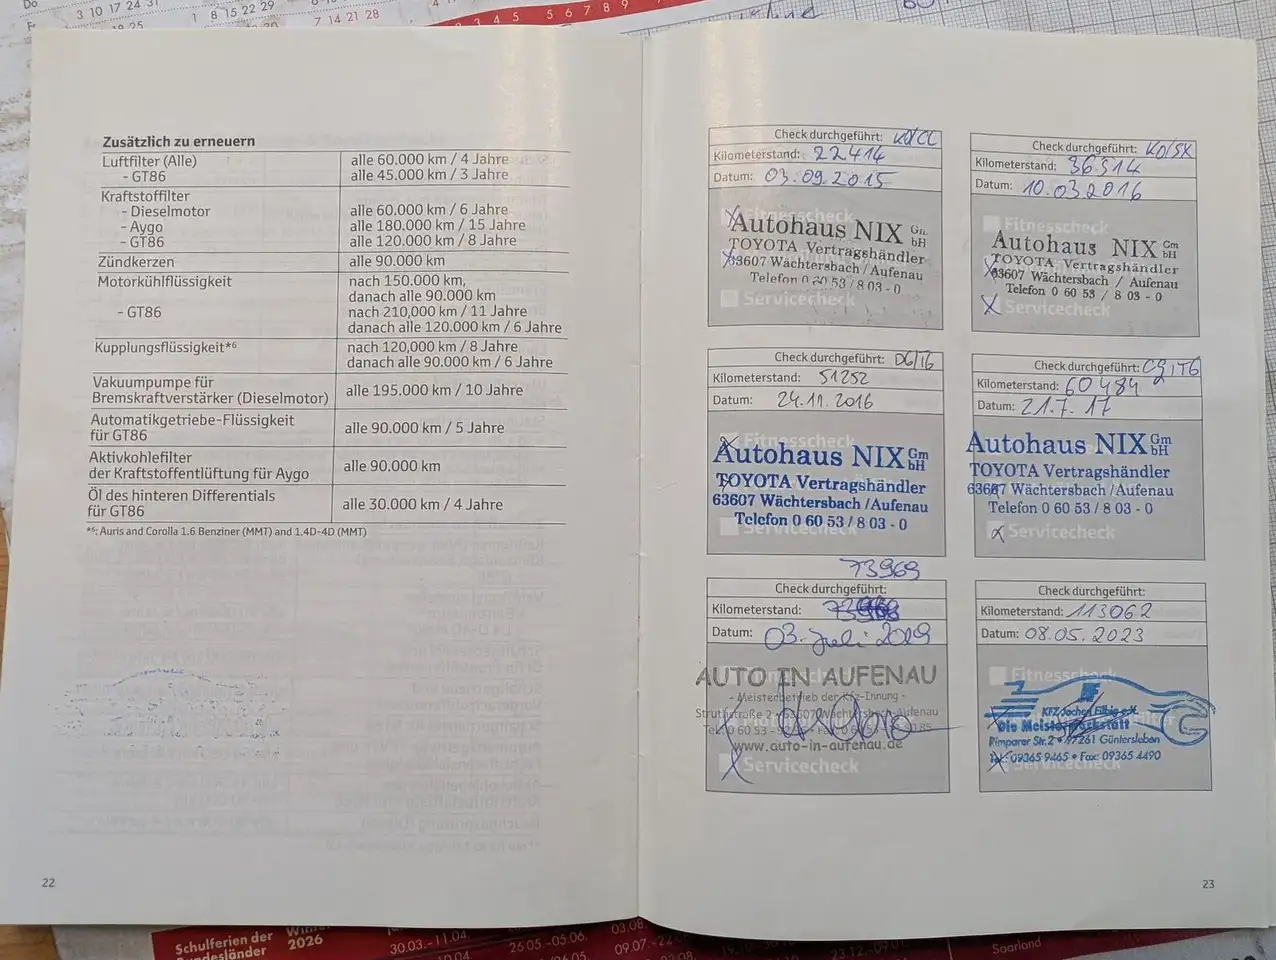 Do
3 10 17 24 31
1 8 15 22 29
7 14 21 28
3 4 5
5 6 7 8 9
Fr
Zusätzlich zu erneuern
Luftfilter (Alle) alle 60.000 km / 4 Jahre
- GT86 alle 45.000 km / 3 Jahre
Kraftstoffilter
- Dieselmotor alle 60.000 km / 6 Jahre
- Aygo alle 180.000 km / 15 Jahre
- GT86 alle 120.000 km / 8 Jahre
Zündkerzen alle 90.000 km
Motorkühlflüssigkeit nach 150.000 km,
danach alle 90.000 km
- GT86 nach 210,000 km / 11 Jahre
danach alle 120.000 km / 6 Jahre
Kupplungsflüssigkeit*⁶ nach 120,000 km / 8 Jahre
danach alle 90.000 km / 6 Jahre
Vakuumpumpe für
Bremskraftverstärker (Dieselmotor) alle 195.000 km / 10 Jahre
Automatikgetriebe-Flüssigkeit
für GT86 alle 90.000 km / 5 Jahre
Aktivkohlefilter
der Kraftstoffentlüftung für Aygo alle 90.000 km
Öl des hinteren Differentials
für GT86 alle 30.000 km / 4 Jahre
*⁶: Auris and Corolla 1.6 Benziner (MMT) and 1.4D-4D (MMT)
22
Check durchgeführt: KO/CC
Kilometerstand: 22414
Datum: 03.09.2015
Fitnesscheck
Autohaus NIX Gm bH
TOYOTA Vertragshändler
63607 Wächtersbach / Aufenau
Telefon 0 60 53 / 8 03 - 0
Servicecheck
Check durchgeführt: KO/SX
Kilometerstand: 36514
Datum: 10.03.2016
Fitnesscheck
Autohaus NIX Gm bH
TOYOTA Vertragshändler
63607 Wächtersbach / Aufenau
Telefon 0 60 53 / 8 03 - 0
Servicecheck
Check durchgeführt: DG/TG
Kilometerstand: 51252
Datum: 24.11.2016
Fitnesscheck
Autohaus NIX Gm bH
TOYOTA Vertragshändler
63607 Wächtersbach /Aufenau
Telefon 0 60 53 / 8 03 - 0
Servicecheck
Check durchgeführt: CG/TG
Kilometerstand: 60484
Datum: 21.7.17
Autohaus NIX Gm bH
TOYOTA Vertragshändler
63607 Wächtersbach /Aufenau
Telefon 0 60 53 / 8 03 - 0
Servicecheck
73969
Check durchgeführt:
Kilometerstand:
Datum: 03. Juli 2019
AUTO IN AUFENAU
- Meisterbetrieb der Kfz-Innung -
Struthstraße 2 63607 Wächtersbach-Aufenau
www.auto-in-aufenau.de
Servicecheck
Check durchgeführt:
Kilometerstand: 113062
Datum: 08.05.2023
Fitnesscheck
KFZ Jochen Filbig e.K.
Die Meisterwerkstatt
Rimparer Str. 2 • 97261 Güntersleben
Tel.: 09365 9465 • Fax: 09365 4490
Servicecheck
23
Schulferien der
Bundesländer
Winter
2026
30.03.-11.04.
26.05.-05.06.
03.08.
09.07.-22
Saarland